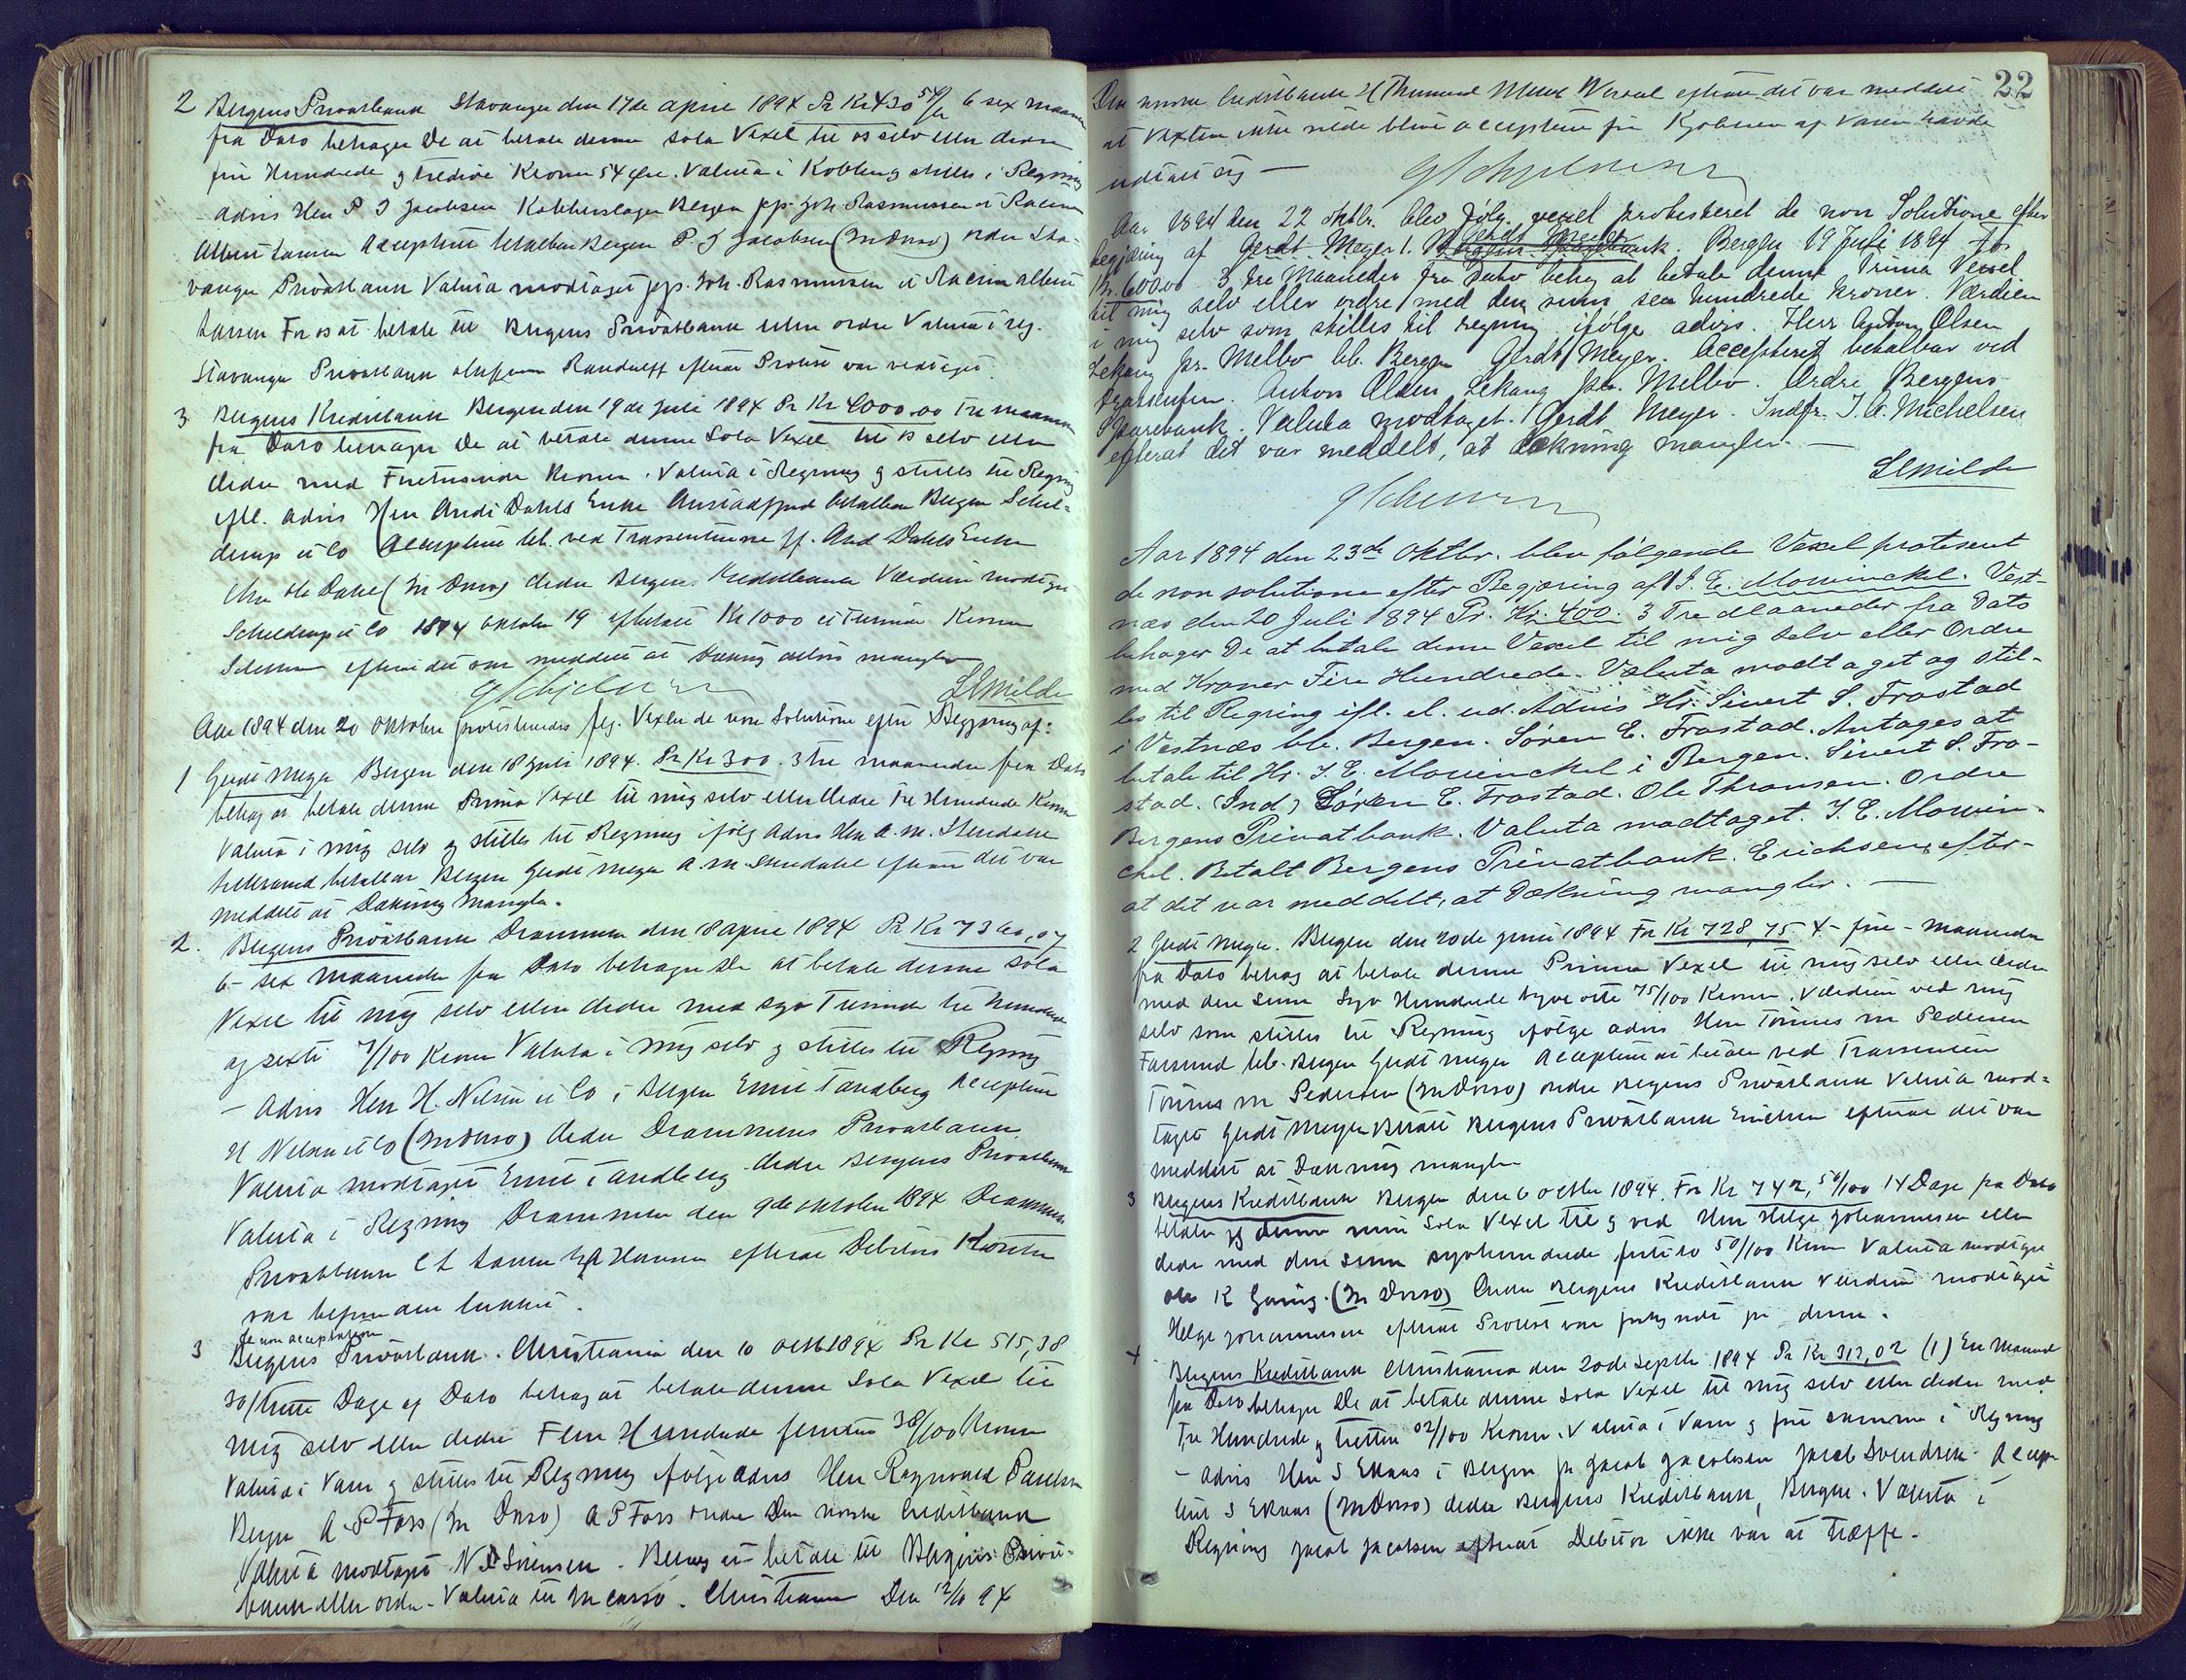 2 Bergens Privatbank Stavanger den 17de april 1894 Pr Kr 430 54/ 6 sex maaneder
fra Dato behager De at betale denne Sola Vexel til os selv eller Ordre
fire Hundrede og tredive Kroner 54 Øre. Valuta i Kobber og stilles i Regning
advis Herr P J Jacobsen Kobberslager Bergen pp. Joh. Rasmussen &
Albert Larsen Acceptert betalbar Bergen P. J Jacobsen (In Dorso) Ordre Sta-
vanger Privatbank Valuta modtaget pp. Joh. Rasmussen & Albert
Larsen For os at betale til Bergens Privatbank eller ordre Valuta i reg.
Stavanger Privatbank efterat Protest var vedtaget.
3 Bergens Kreditbank Bergen den 19de Juli 1894 Pr Kr 4000.00 Tre maaneder
fra Dato behager De at betale denne Sola Vexel til os selv eller
Ordre med Firetusinde Kroner. Valuta i Regning og stilles til Regning
ifl. advis Herr Dahls Enke betalbar Bergen Schel-
derup & Co Acceptert bet. ved Trassenterne ff. And Dahls Enke
Ole Dahl (In Dorso) Ordre Bergens Kreditbank Værdien modtaget
Schelderup & Co 1894 oktober 19 afbetalt Kr 1000 et Tusinde Kroner
efterat det var meddelt at Dækning mangler
LSmilde
Aar 1894 den 20 Oktober protesteredes følg. Vexler de non Solutione efter Begjæring af:
1 Gerdt Meyer Bergen den 18 Juli 1894. Pr Kr 300. 3 tre maaneder fra Dato
behag at betale denne Prima Vexel til mig selv eller Ordre Tre Hundrede Kroner
Valuta i mig selv og stilles til Regning ifølg advis Herr A. M. Stendahl
betalbar Bergen Gerdt Meyer A. M Stendahl efterat det var
meddelt at Dækning mangler.
2. Bergens Privatbank Drammen den 18 april 1894 Pr Kr 7360,07
6- sex maaneder fra Dato behager De at betale denne Sola
Vexel til mig selv eller Ordre med syv Tusinde tre Hundrede
og sexti 7/100 Kroner Valuta i mig selv og stilles til Regning
- advis Herr H. Nilsen & Co i Bergen Emil Tandberg Accepteret
H Nilsen & Co (In Dorso) Ordre Drammens Privatbank.
Valuta modtaget Emil Tandberg Ordre Bergens Privatbank
Valuta i Regning Drammen den 9de oktober 1894 Drammens
Privatbank C L Larsen Hansen efterat Debitors Kontor
var befunden lukket.
de non acceptatione
3 Bergens Privatbank. Christiania den 10 oktb 1894 Pr Kr 515,38
30/tretti Dage af Dato behag at betale denne Sola Vexel til
mig selv eller Ordre Fem Hundrede femten 38/100 Kroner
Valuta i Varer og stilles til Regning ifølge advis Herr Ragnvald Paulsen
Bergen A. P Foss (In Dorso) A P Foss Ordre Den norske Creditbank
Valuta modtaget N. Svensen. Behag at betale til Bergens Privat-
bank eller ordre. Valuta til Incasso. Christiania Den 12/10 94
22
Den norske Creditbank efterat det var meddelt
at Vexlen ikke vilde blive accepteret før Kjøberen af Varen havde
udtalt sig —
Aar 1894 den 22 oktbr. blev følg. vexel protesteret de non Solutione efter
begjæring af Gerdt Meyer 1. Bergen 19 Juli 1894 for
Kr. 600.00 3 tre Maaneder fra Dato behag at betale denne Prima Vexel
til mig selv eller ordre med den sum sex hundrede kroner. Værdien
i mig selv som stilles til regning ifølge advis. Herr Anton Olsen
Lekang pr. Melbo bb. Bergen Gerdt Meyer. Accepteret betalbar ved
Trassenten. Anton Olsen Lekang pr. Melbo. Ordre Bergens
Sparebank. Valuta modtaget. Gerdt Meyer. Indfr. J. A. Michelsen
efterat det var meddelt, at dækning mangler. —
LSmilde
Aar 1894 den 23de Oktbr. blev følgende Vexel protesteret
de non solutione efter Begjæring af J. E. Mowinckel. Vest-
næs den 20 Juli 1894 Pr. Kr. 400. 3 Tre Maaneder fra Dato
behager De at betale denne Vexel til mig selv eller Ordre
med Kroner Fire Hundrede. Valuta modtaget og stil-
les til Regning ifl. el. ud. Advis Hr. Sivert S. Frostad
i Vestnæs bb. Bergen. Søren E. Frostad. Antages at
betale til Hr. J. E. Mowinckel i Bergen. Sivert S. Fro-
stad. (Ind) Søren E. Frostad. Ole Thransen. Ordre
Bergens Privatbank. Valuta modtaget. J. E. Mowin-
ckel. Betalt Bergens Privatbank. Erichsen, efter-
at det var meddelt, at Dækning mangler. —
2 Gerdt Meyer. Bergen den 20de juni 1894 For Kr 728,75 4- fire - Maaneder
fra Dato behag at betale denne Prima Vexel til mig selv eller Ordre
med den Sum Syv Hundrede tyve otte 75/100 Kroner. Værdien ved mig
selv som stilles til Regning ifølge advis Herr Tønnes M Pedersen
Farsund bb. Bergen Gerdt Meyer Accepteret at betale ved Trassenten
Tønnes M Pedersen (In Dorso) Ordre Bergens Privatbank Valuta mod-
taget Gerdt Meyer Betalt Bergens Privatbank Erichsen efterat det var
meddelt at Dækning mangler
3 Bergens Kreditbank Bergen den 6 octbr 1894. For Kr 742,50/100 14 Dage fra Dato
betaler jeg denne min Sola Vexel til og ved Herr Helge Johannesen eller
Ordre med den Sum syvhundrede firti to 50/100 Kroner Valuta modtaget
Ole K (In Dorso) Ordre Bergens Kreditbank Værdien modtaget
Helge Johannesen efterat Protest var forkyndt for denne.
4 Bergens Kreditbank Christiania den 20de Septbr. 1894 Pr Kr 313,02 (1) En Maaned
fra Dato behager De at betale denne Sola Vexel til mig selv eller Ordre med
Tre Hundrede og tretten 02/100 Kroner. Valuta i Varer og før samme i Regning
- advis Herr S Ekaas i Bergen pr Jacob Jacobsen Jacob Svendsen Accep-
tert S Ekaas (In Dorso) Ordre Bergens Kreditbank, Bergen. Valuta i
Regning Jacob Jacobsen efterat Debitor ikke var at træffe.